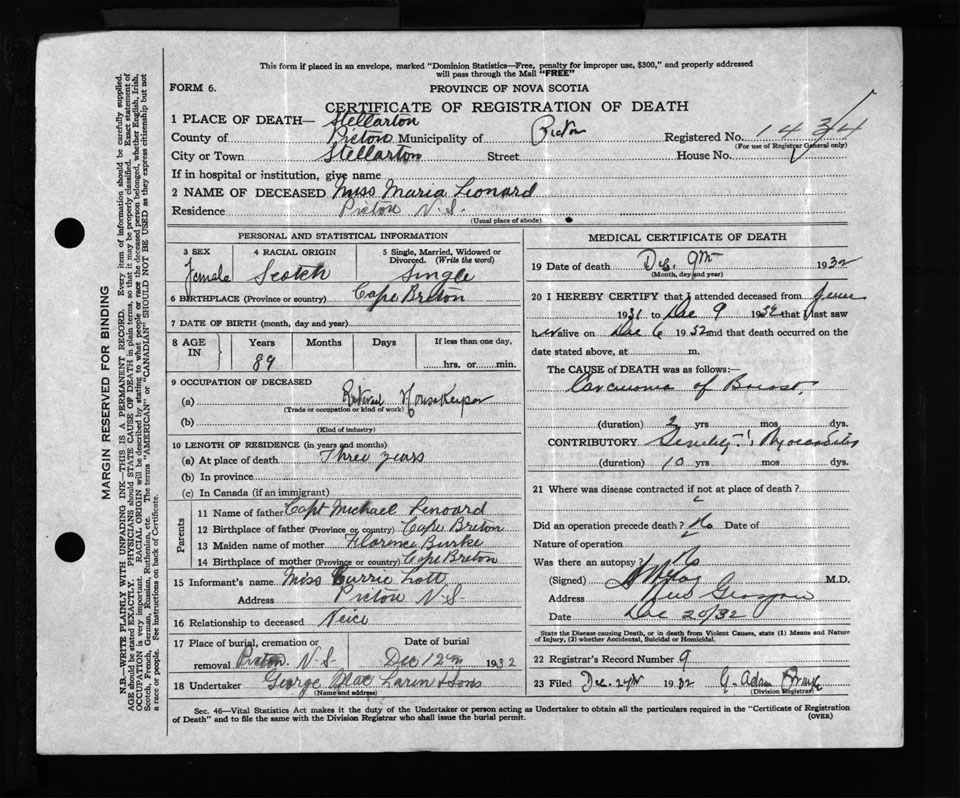 This form if placed in an envelope, marked "Dominion Statistics—Free, penalty for improper use, $300," and properly addressed
will pass through the Mail "FREE"
FORM 6.
PROVINCE OF NOVA SCOTIA
CERTIFICATE OF REGISTRATION OF DEATH
1 PLACE OF DEATH— Stellarton
County of Pictou Municipality of Pictou Registered No. 1434
(For use of Registrar General only)
City or Town Stellarton Street House No.
If in hospital or institution, give name
2 NAME OF DECEASED Miss Maria Leonard
Residence Pictou N.S.
(Usual place of abode)
PERSONAL AND STATISTICAL INFORMATION
3 SEX Female
4 RACIAL ORIGIN Scotch
5 Single, Married, Widowed or Divorced. (Write the word) Single
6 BIRTHPLACE (Province or country) Cape Breton
7 DATE OF BIRTH (month, day and year)
8 AGE IN Years Months Days If less than one day,
89 hrs. or min.
9 OCCUPATION OF DECEASED
(a) Retired Housekeeper
(Trade or occupation or kind of work)
(b)
(Kind of industry)
10 LENGTH OF RESIDENCE (in years and months)
(a) At place of death Three years
(b) In province
(c) In Canada (if an immigrant)
Parents
11 Name of father Capt Michael Lenoard
12 Birthplace of father (Province or country) Cape Breton
13 Maiden name of mother Florence Burke
14 Birthplace of mother (Province or country) Cape Breton
15 Informant's name Miss Currie Lott
Address Pictou N.S.
16 Relationship to deceased Neice
17 Place of burial, cremation or removal Pictou N.S.
Date of burial Dec 12th 1932
18 Undertaker George MacLaren & Sons
(Name and address)
MEDICAL CERTIFICATE OF DEATH
19 Date of death Dec. 9th 1932
(Month, day and year)
20 I HEREBY CERTIFY that I attended deceased from June
1931 to Dec 9 1932 that I last saw
her alive on Dec 6 1932 and that death occurred on the
date stated above, at m.
The CAUSE OF DEATH was as follows:—
Carcinoma of Breast
(duration) 2 yrs mos dys.
CONTRIBUTORY Senility: Myocarditis
(duration) 10 yrs mos dys.
21 Where was disease contracted if not at place of death?
Did an operation precede death? No Date of
Nature of operation
Was there an autopsy? No
(Signed) M.D.
Address New Glasgow
Date Dec 20/32
State the Disease causing Death, or in death from Violent Causes, state (1) Means and Nature
of Injury, (2) whether Accidental, Suicidal or Homicidal.
22 Registrar's Record Number 9
23 Filed Dec. 1932 G. Adam
(Division Registrar)
Sec. 46—Vital Statistics Act makes it the duty of the Undertaker or person acting as Undertaker to obtain all the particulars required in the "Certificate of Registration
of Death" and to file the same with the Division Registrar who shall issue the burial permit.
(OVER)
MARGIN RESERVED FOR BINDING
N.B.—WRITE PLAINLY WITH UNFADING INK—THIS IS A PERMANENT RECORD. Every item of information should be carefully supplied.
AGE should be stated EXACTLY. PHYSICIANS should STATE CAUSE OF DEATH in plain terms, so that it may be properly classified. Exact statement of
OCCUPATION is very important. RACIAL ORIGIN will be described by stating to what people or race the deceased person belonged, whether English, Irish,
Scotch, French, German, Russian, Ruthenian, etc. The terms "AMERICAN" or "CANADIAN" SHOULD NOT BE USED as they express citizenship but not
a race or people. See instructions on back of Certificate.